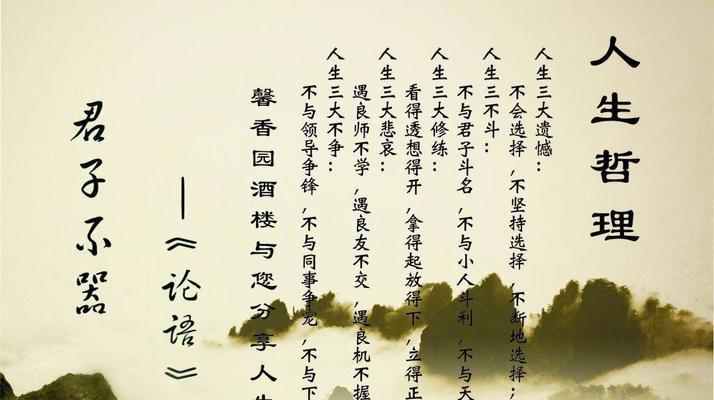 人生哲理
人生三大遗憾：
不会选择，不坚持选择，不断地选择；
人生三不斗：
不与君子斗名，不与小人斗利，不与天
人生三大修练：
看得透想得开，拿得起放得下，立得正
人生三大悲哀：
遇良师不学，遇良友不交，遇良机不握
人生三大不争：
不与领导争锋，不与同事争宠，不与下
馨香园酒楼与您分享人生
——《论语》
君子不器